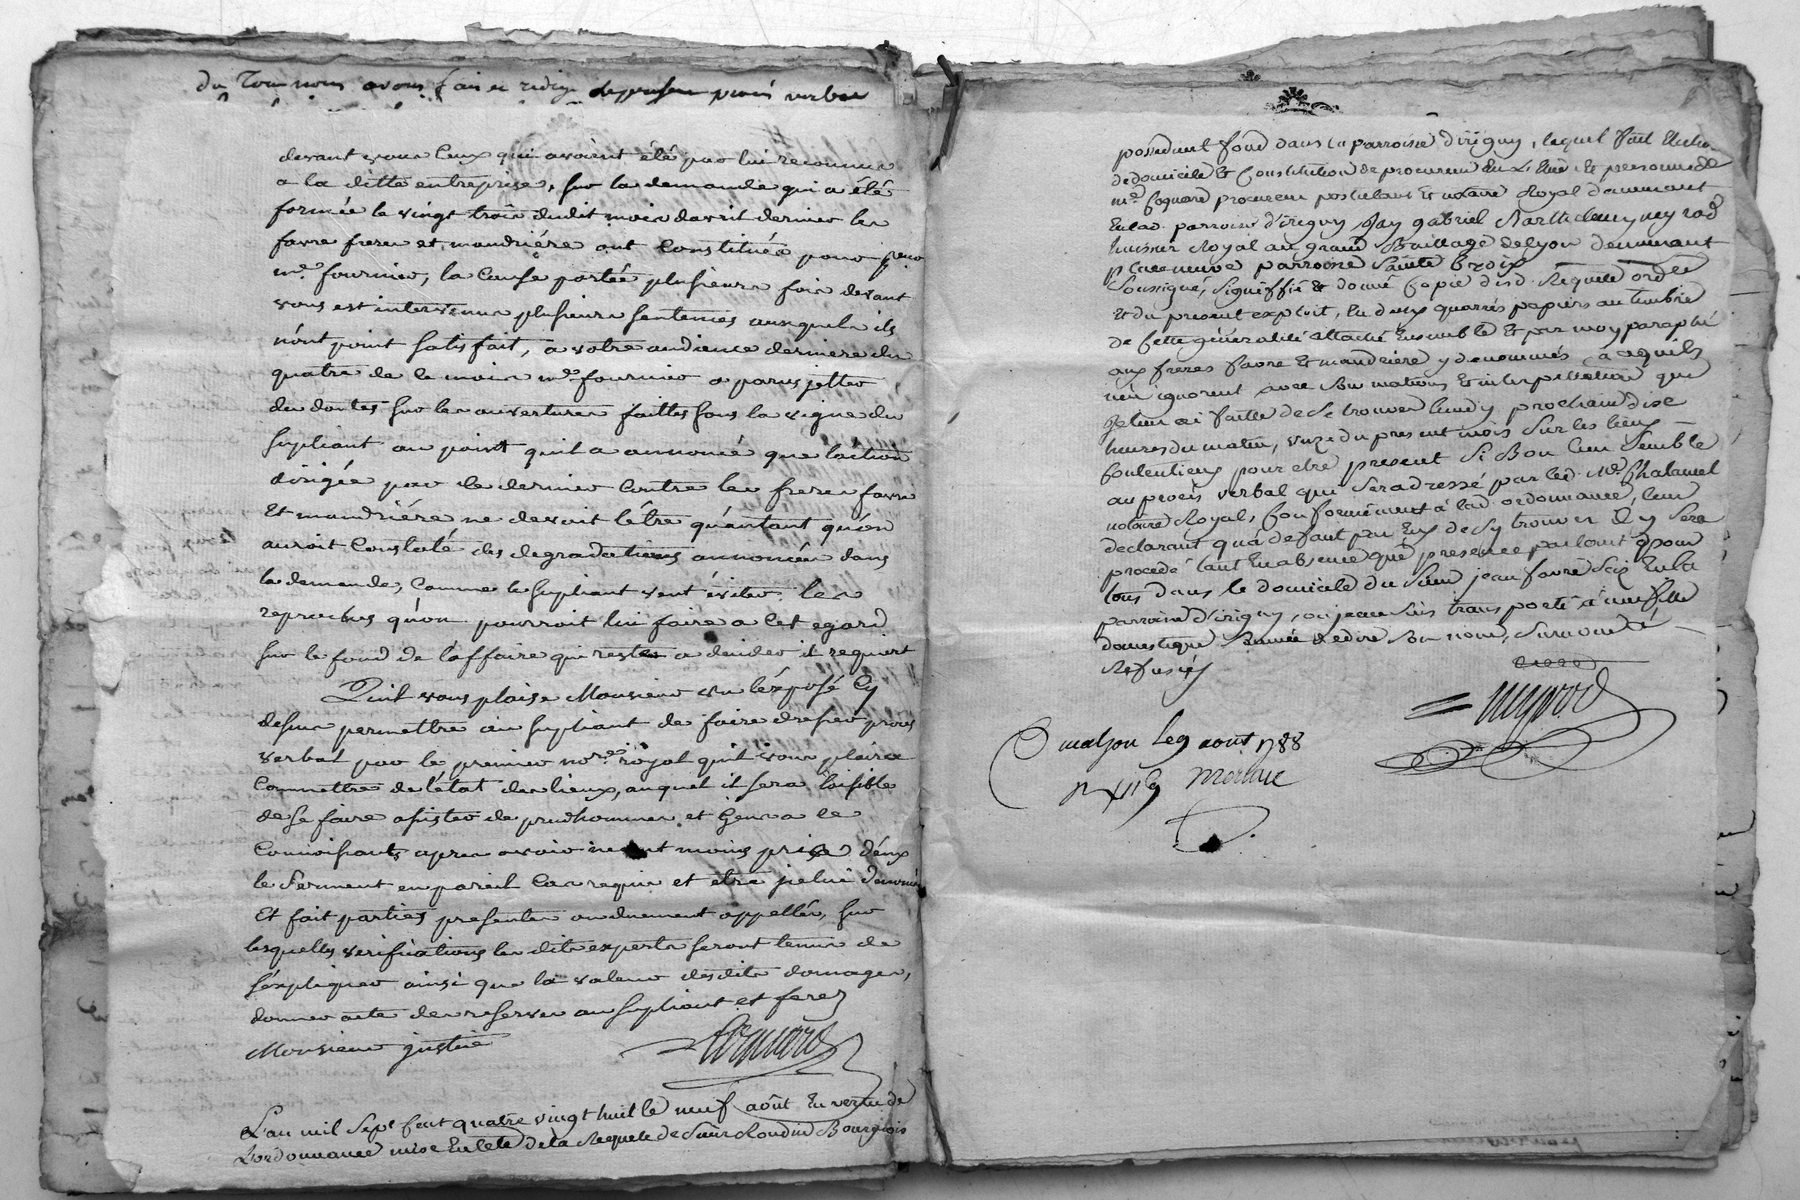 du Tour nous avons fait et redigé le present procès verbal
devant vous ceux qui avoient été par lui reconnus
a la ditte entreprise, sur la demande qui a été
formée le vingt trois dudit mois davril dernier les
favre freres et maudriére ont constitués pour procu
me. fournier, la cause portée plusieurs fois devant
vous est intervenue plusieurs sentences auxquels ils
n'ont point satisfait, a votre audience derniere du
quatre de ce mois me. fournier a parus jetter
des doutes sur les ouvertures faittes sous la vigne du
supliant au point quil a annoncé que laction
dirigée par ce dernier contre les freres favre
Et maudriére ne devoit l'être qu'autant qu'on
auroit constaté les degradations annoncées dans
la demande, comme le supliant veut éviter les
reproches qu'on pourroit lui faire a cet egard
sur le fond de l'affaire qui reste a decider il requiert
Quil vous plaise Monsieur vu l'éxposé Cy
dessus permettre au supliant de faire dresser procès
verbal par le premier nore. royal quil vous plaira
Commettre de l'état des lieux, auquel il sera loisible
de se faire assister de prudhommes et Gens a ce
Connoissants apres avoir neant moins prise d'eux
le serment en pareil Cas requis et etre jcelui
Et fait parties presentes ou duement appellées, sur
lesquelles verifications les dits experts seront tenus de
s'expliquer ainsi que la valeur desdits domages,
donner acte des reserves au supliant et ferez
Monsieur justice
Coquard
L'an mil Sept Cent quatre vingt huit le neuf août En vertu de
L'ordonnance mise En tête de la Requete de Sieur Bourgeois
possedant fond dans la parroisse d'irigny, lequel fait Election
de domicile Et Constitution de procureur En L'Etude Et personne de
me. Coquard procureur postulant Et notaire Royal demeurant
En lad. parroisse d'irigny Jay gabriel Barthelemy meyrod
huissier Royal au grand Baillage de Lyon demeurant
place neuve parroisse Sainte Croix
Soussigné, Signiffié Et donné Copie desd. Requete ordce
Et du present exploit, En deux quarrés papiers au timbre
de Cette généralité attaché Ensemble Et par moy paraphé
aux freres favre Et maudriere y denommés a ce quils
n'en ignorent avec Sommations Et interpellation que
Je leur ai faitte de Se trouver lundy prochain dix
heures du matin, onze du present mois Sur les lieux
Contentieux pour etre present Si Bon leur Semble
au procès verbal qui Sera dressé par led. Me. Chalamel
notaire Royal, Conformément à lad. ordonnance, leur
declarant qu'a defaut par Eux de Sy trouver il y Sera
procedé tant En absence que presence parlant pour
tous dans le domicile du Sieur jean favre Sciz En la
parroisse d'irigny, ou je me Suis transporté à une fille
domestique Sommée de dire Son nom,
Refusés
meyrod
Cmalyon Le 9 aout 1788